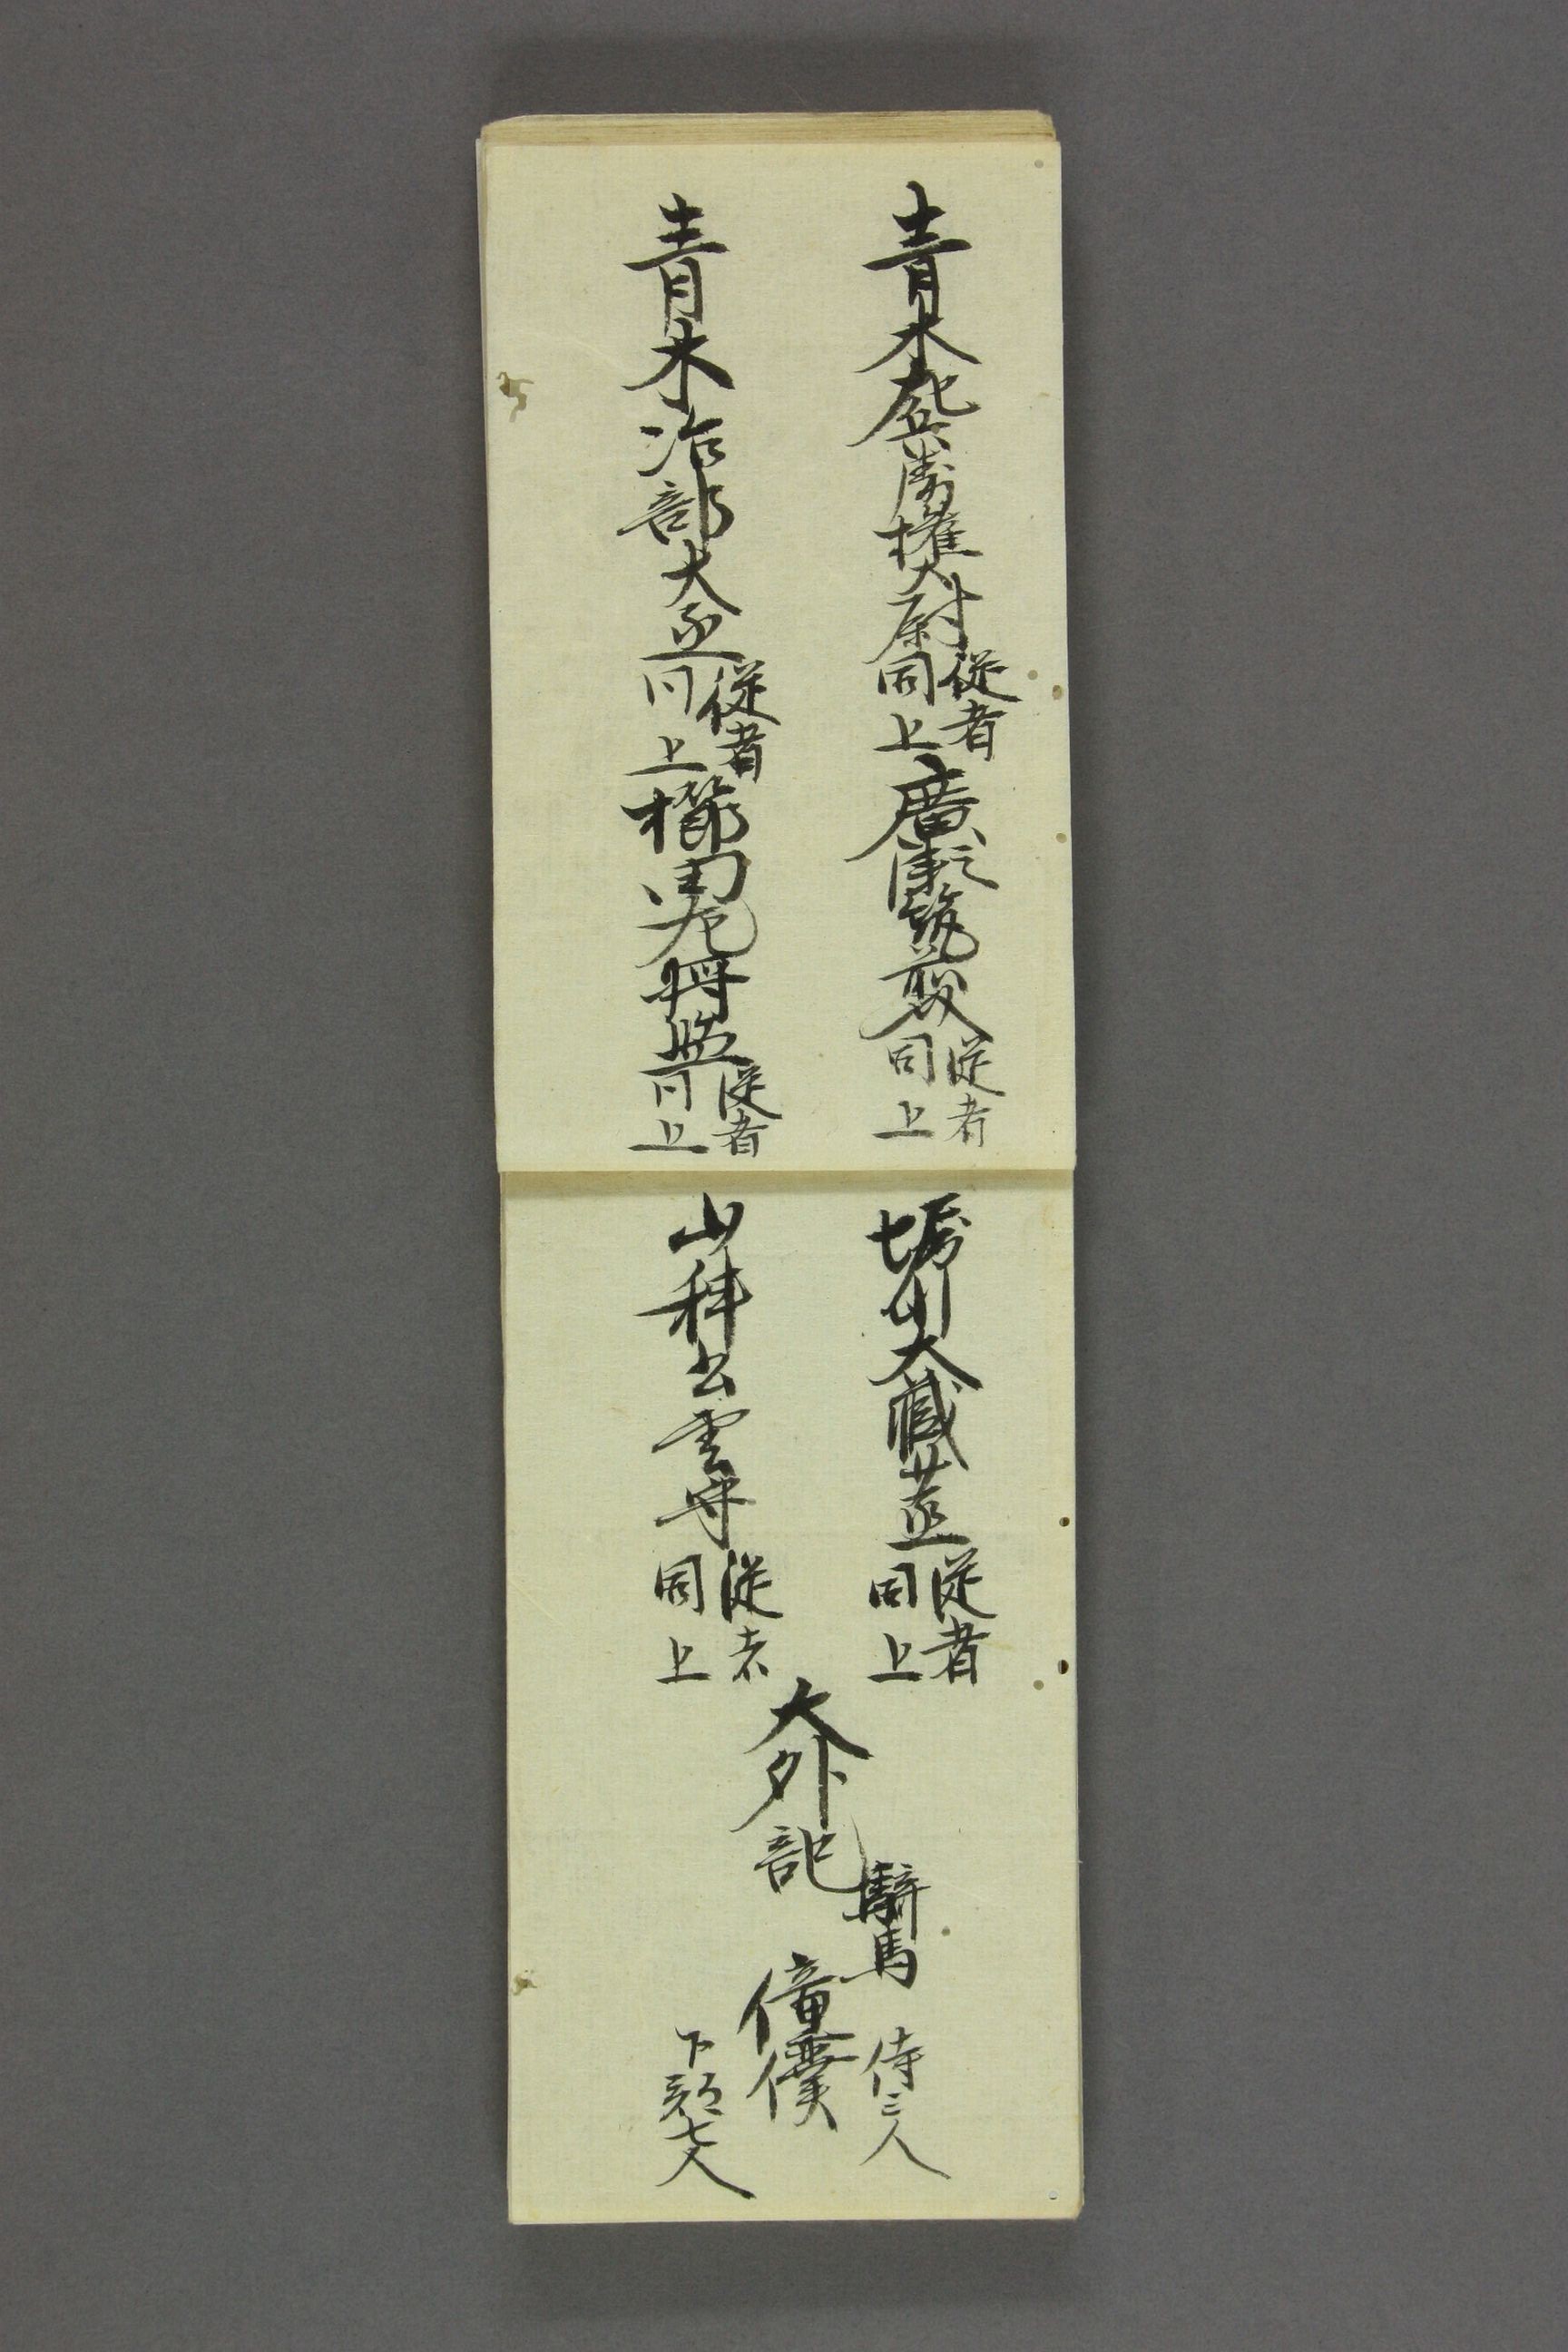 青木左兵衛権大尉 従者同上
廣庭筑前 従者同上
青木治部大丞 従者同上
櫛田左将監 従者同上
堀川大蔵丞 従者同上
山科出雲守 従者同上
大外記 騎馬
僮僕 侍三人
下部七人